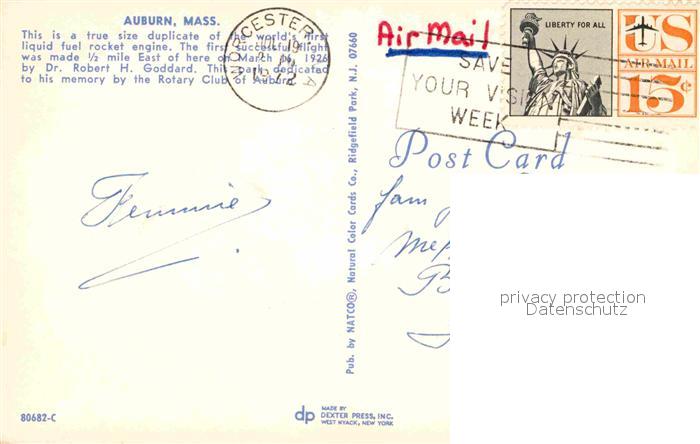 AUBURN, MASS.
This is a true size duplicate of the world's first
liquid fuel rocket engine. The first successful flight
was made ½ mile East of here on March 16, 1926
by Dr. Robert H. Goddard. This park dedicated
to his memory by the Rotary Club of Auburn.
WORCESTER
Air Mail
SAVE
YOUR VISION
WEEK
LIBERTY FOR ALL
US
AIR MAIL
15¢
Post Card
Femmie
fam
Pub. by NATCO®, Natural Color Cards Co., Ridgefield Park, N.J. 07660
privacy protection
Datenschutz
80682-C
dp
MADE BY
DEXTER PRESS, INC.
WEST NYACK, NEW YORK